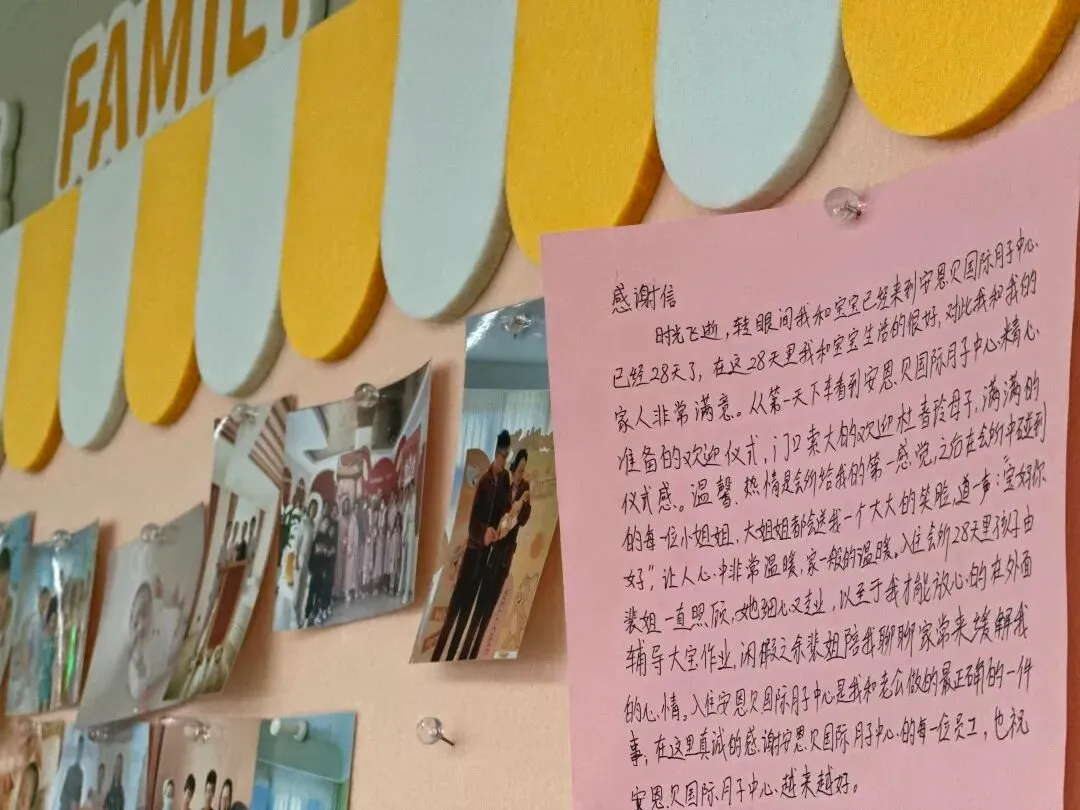 FAMILY
感谢信
时光飞逝，转眼间我和宝宝已经来到安恩贝国际月子中心
已经28天了，在这28天里我和宝宝生活的很好，对此我和我的
家人非常满意。从第一天下车看到安恩贝国际月子中心精心
准备的欢迎仪式，门口索大的欢迎杜春玲母子，满满的
仪式感。温馨、热情是会所给我的第一感觉，之后在会所中碰到
的每一位小姐姐，大姐姐都会送我一个大大的笑脸，道一声：宝妈你
好”，让人心中非常温暖，家一般的温暖，入住会所28天里孩子由
裴姐一直照顾，她细心又专业，以至于我才能放心的在外面
辅导大宝作业，闲假之余裴姐陪我聊聊家常来缓解我
的心情。入住安恩贝国际月子中心是我和老公做的最正确的一件
事，在这里真诚的感谢安恩贝国际月子中心的每一位员工，也祝
安恩贝国际月子中心越来越好。